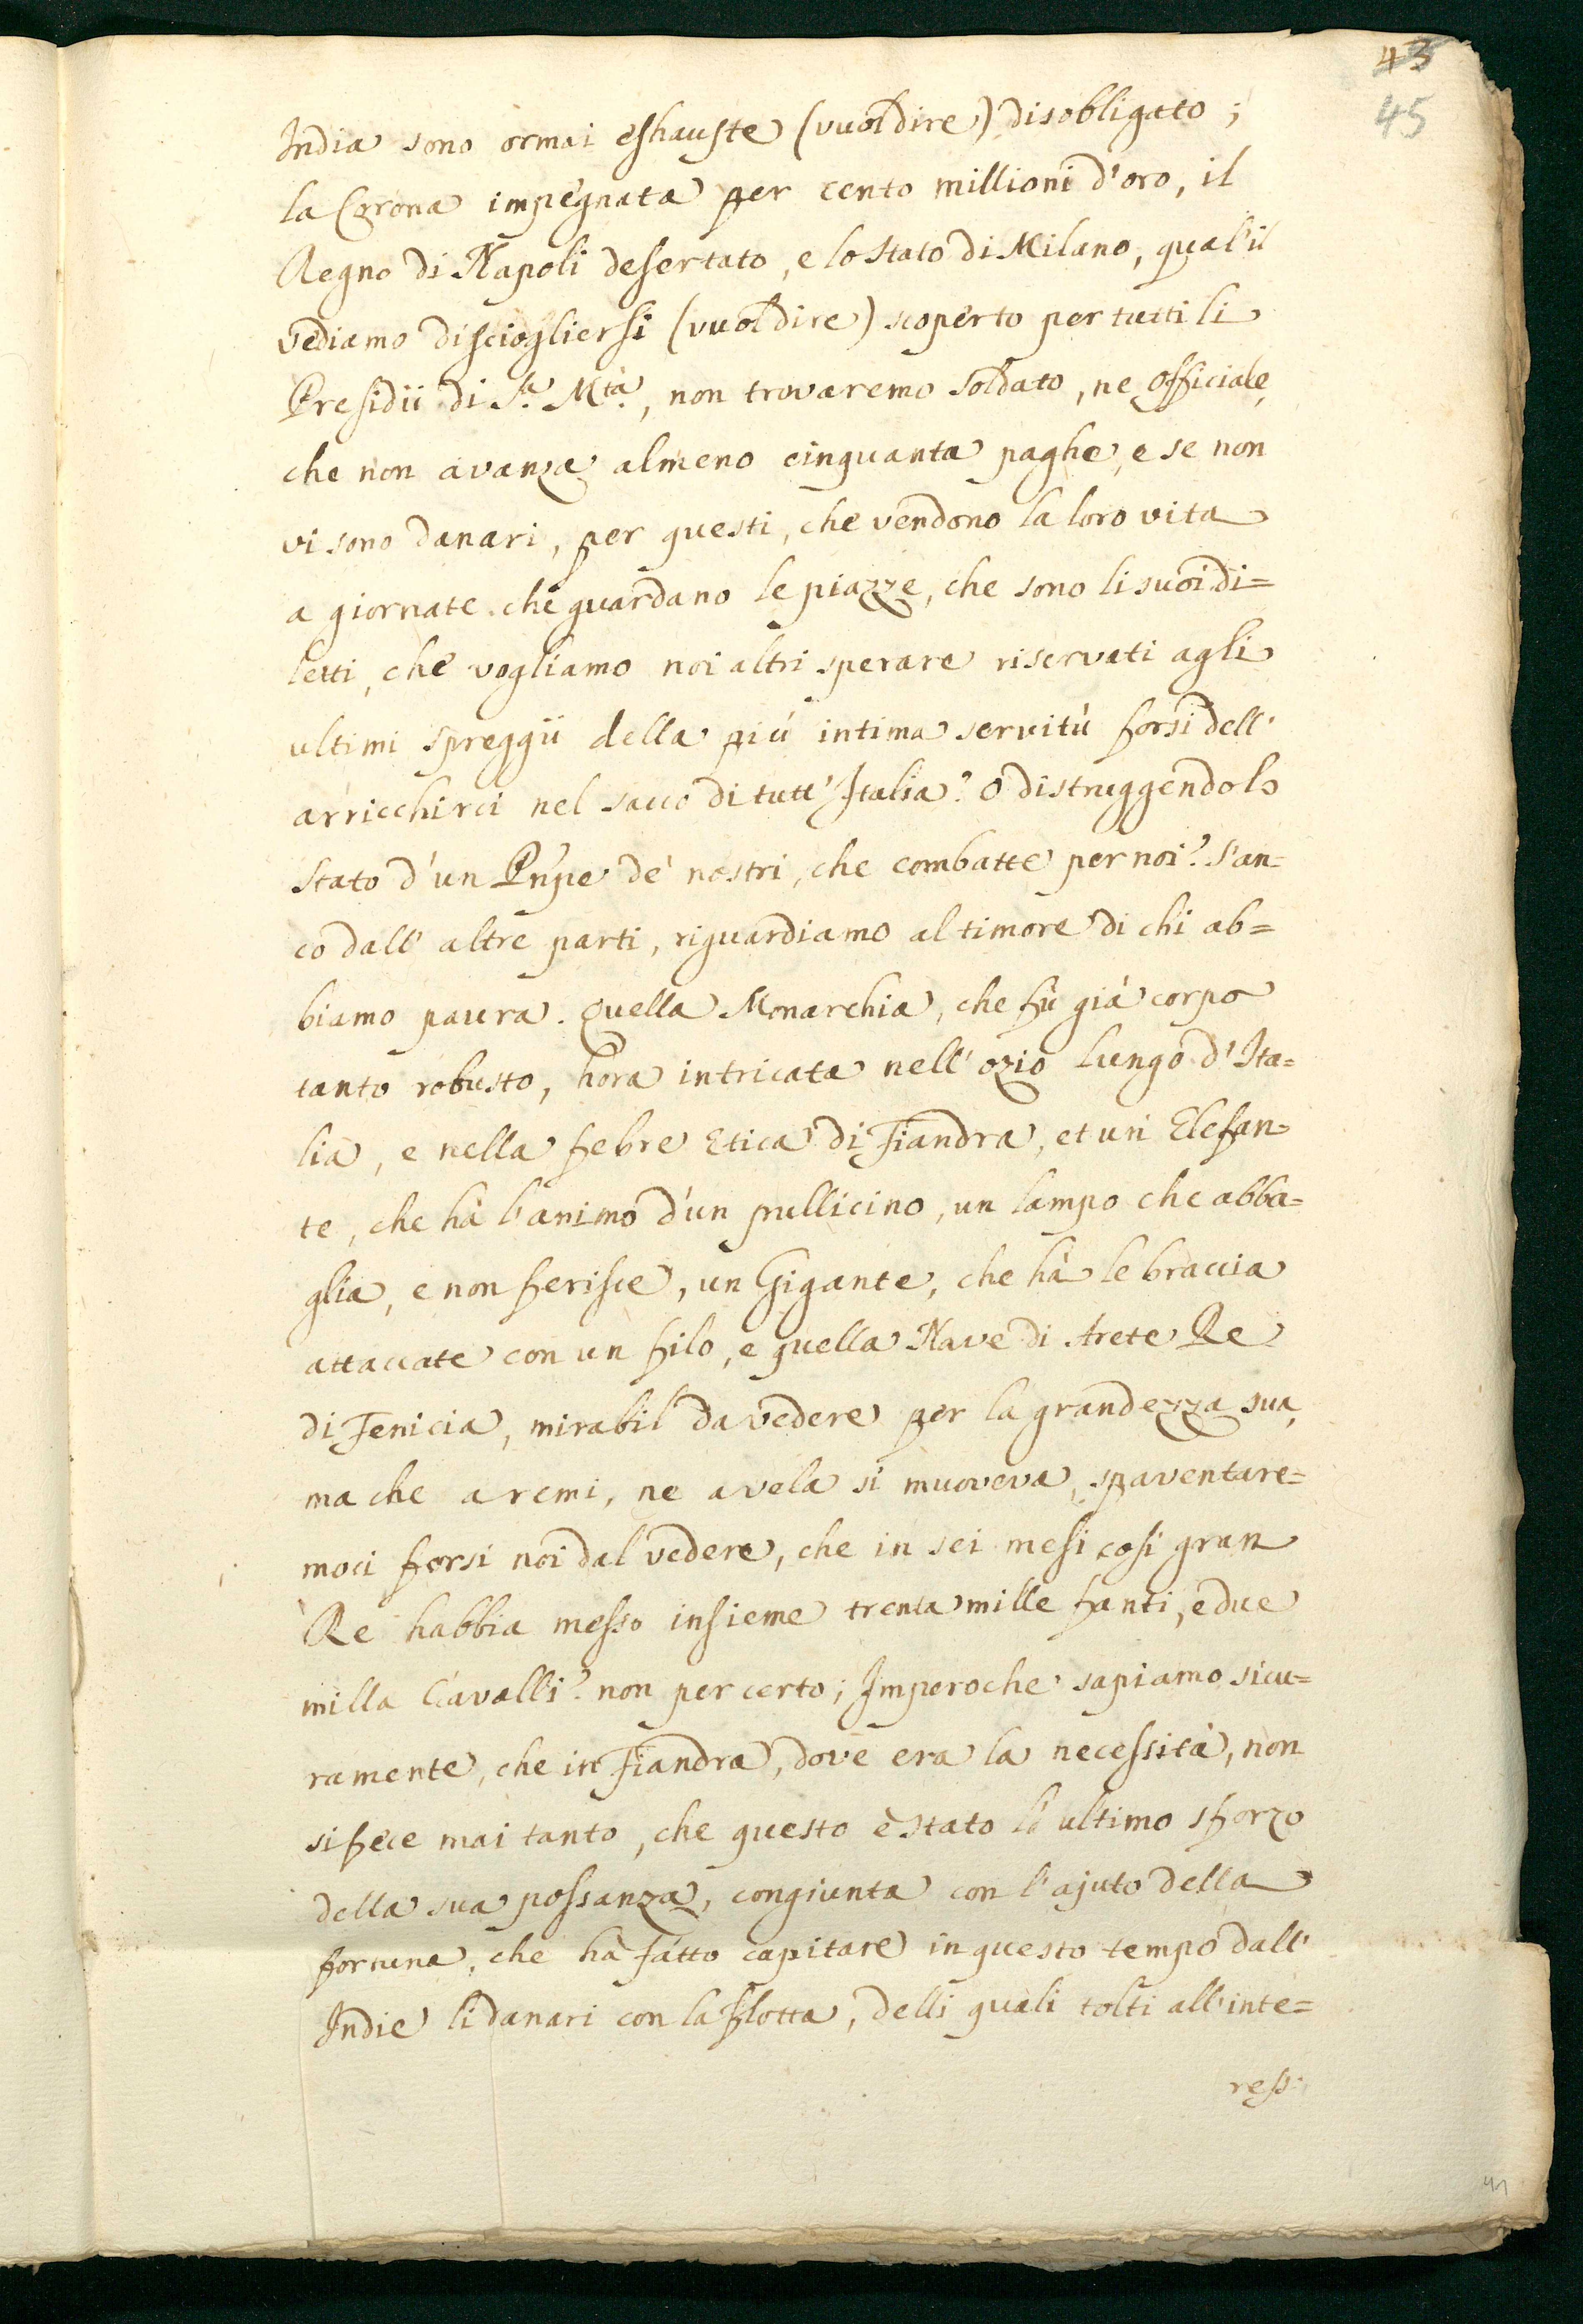 43
45
India sono ormai eshauste (vuol dire) disobligato;
la Corona impegnata per cento millioni d'oro, il
Regno di Napoli desertato, e lo Stato di Milano, qual'il
vediamo disciogliersi (vuol dire) scoperto per tutti li
Presidii di S.a M.tà, non trovaremo soldato, ne officiale,
che non avanza almeno cinquanta paghe, e se non
vi sono danari, per questi, che vendono la loro vita
a giornate. che guardano le piazze, che sono li suoi di=
letti, che vogliamo noi altri sperare riservati agli
ultimi spreggii della più intima servitù forsi dell'
arricchirci nel sacco di tutt'Italia? o distruggendo lo
stato d'un Pnpe de' nostri, che combatte per noi? S'an=
co dall' altre parti, riguardiamo al timore di chi ab=
biamo paura. Quella Monarchia, che fù già corpo
tanto robusto, hora intricata nell'ozio lungo d'Ita=
lia, e nella febre Etica di Fiandra, et un Elefan=
te, che hà l'animo d'un pullicino, un lampo che abba=
glia, e non ferisce, un Gigante, che hà le braccia
attaccate con un filo, e quella Nave di Arete Re
di Fenicia, mirabil da vedere per la grandezza sua,
ma che a remi, ne a vela si muoveva, spaventare=
moci forsi noi dal vedere, che in sei mesi così gran
Re habbia messo insieme trenta mille fanti, e due
milla Cavalli? non per certo; Imperoche sapiamo sicu=
ramente, che in Fiandra, dove era la necessità, non
si fece mai tanto, che questo è stato l'ultimo sforzo
della sua possanza, congiunta con l'ajuto della
fortuna, che hà fatto capitare in questo tempo dall'
Indie li danari con la flotta, delli quali tolti all'inte=
ress: